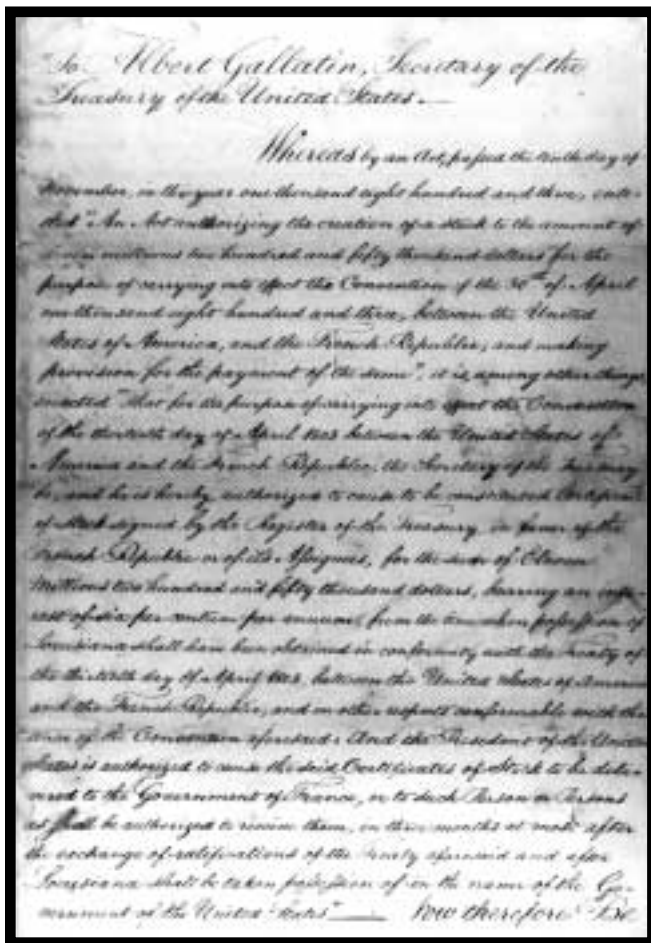 To Albert Gallatin, Secretary of the
Treasury of the United States.
Whereas by an Act, passed the tenth day of
November, in the year one thousand eight hundred and three, enti-
tled "An Act authorizing the creation of a stock to the amount of
eleven millions two hundred and fifty thousand dollars for the
purpose of carrying into effect the Convention of the 30th of April
one thousand eight hundred and three, between the United
States of America, and the French Republic, and making
provision for the payment of the same", it is, among other things
enacted "that for the purpose of carrying into effect the Convention
of the thirtieth day of April 1803 between the United States of
America and the French Republic, the Secretary of the Treasury
be, and he is hereby, authorized to cause to be constituted Certificates
of stock signed by the Register of the Treasury, in favor of the
French Republic or of its Assignees, for the sum of Eleven
Millions two hundred and fifty thousand dollars, bearing an inte-
rest of six per centum per annum, from the time when possession of
Louisiana shall have been obtained in conformity with the treaty of
the thirtieth day of April 1803, between the United States of America
and the French Republic, and in other respects conformable with the
tenor of the Convention aforesaid: And the President of the United
States is authorized to cause the said Certificates of Stock to be deli-
vered to the Government of France, or to such Person or Persons
as shall be authorized to receive them, in three months at most after
the exchange of ratifications of the treaty aforesaid and after
Louisiana shall be taken possession of in the name of the Go-
vernment of the United States" Now therefore Be